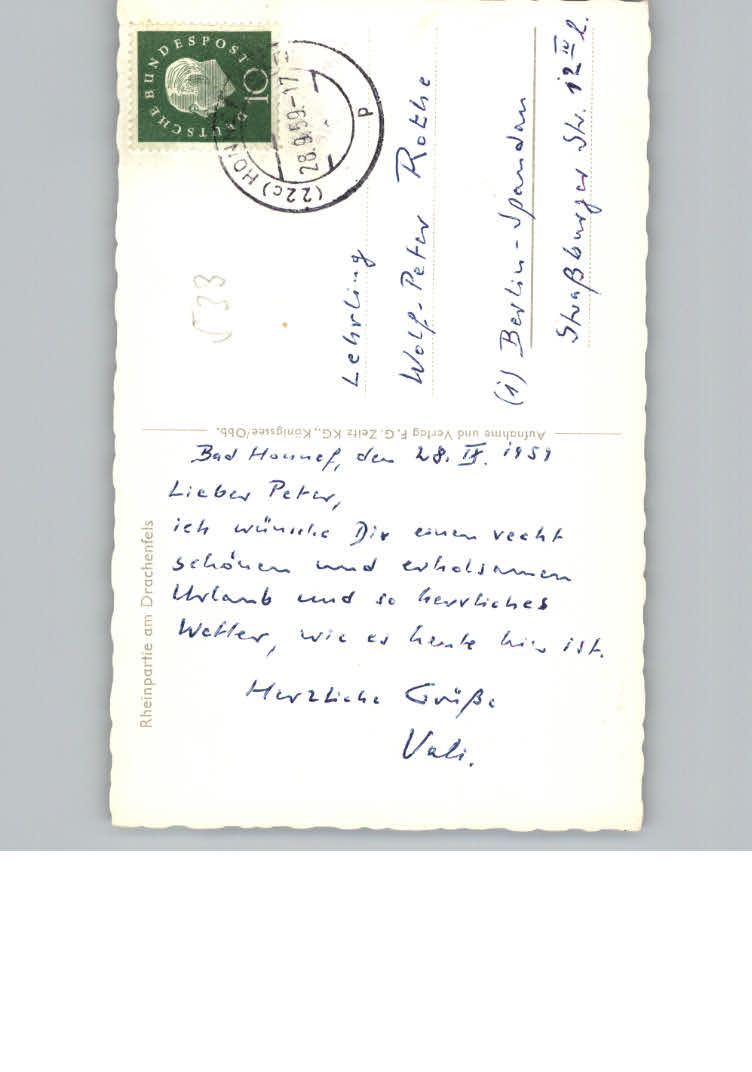 DEUTSCHE BUNDESPOST
10
(22c) HON
28.9.59-17
d
(533
Lehrling
Wolf-Peter Rothe
(1) Berlin-Spandau
Straßburger Str. 12 IV l.
Aufnahme und Verlag F. G. Zeitz KG., Königssee/Obb.
Rheinpartie am Drachenfels
Bad Honnef, den 28. IX. 1959
Lieber Peter,
ich wünsche Dir einen recht
schönen und erholsamen
Urlaub und so herrliches
Wetter, wie es heute hier ist.
Herzliche Grüße
Vati.